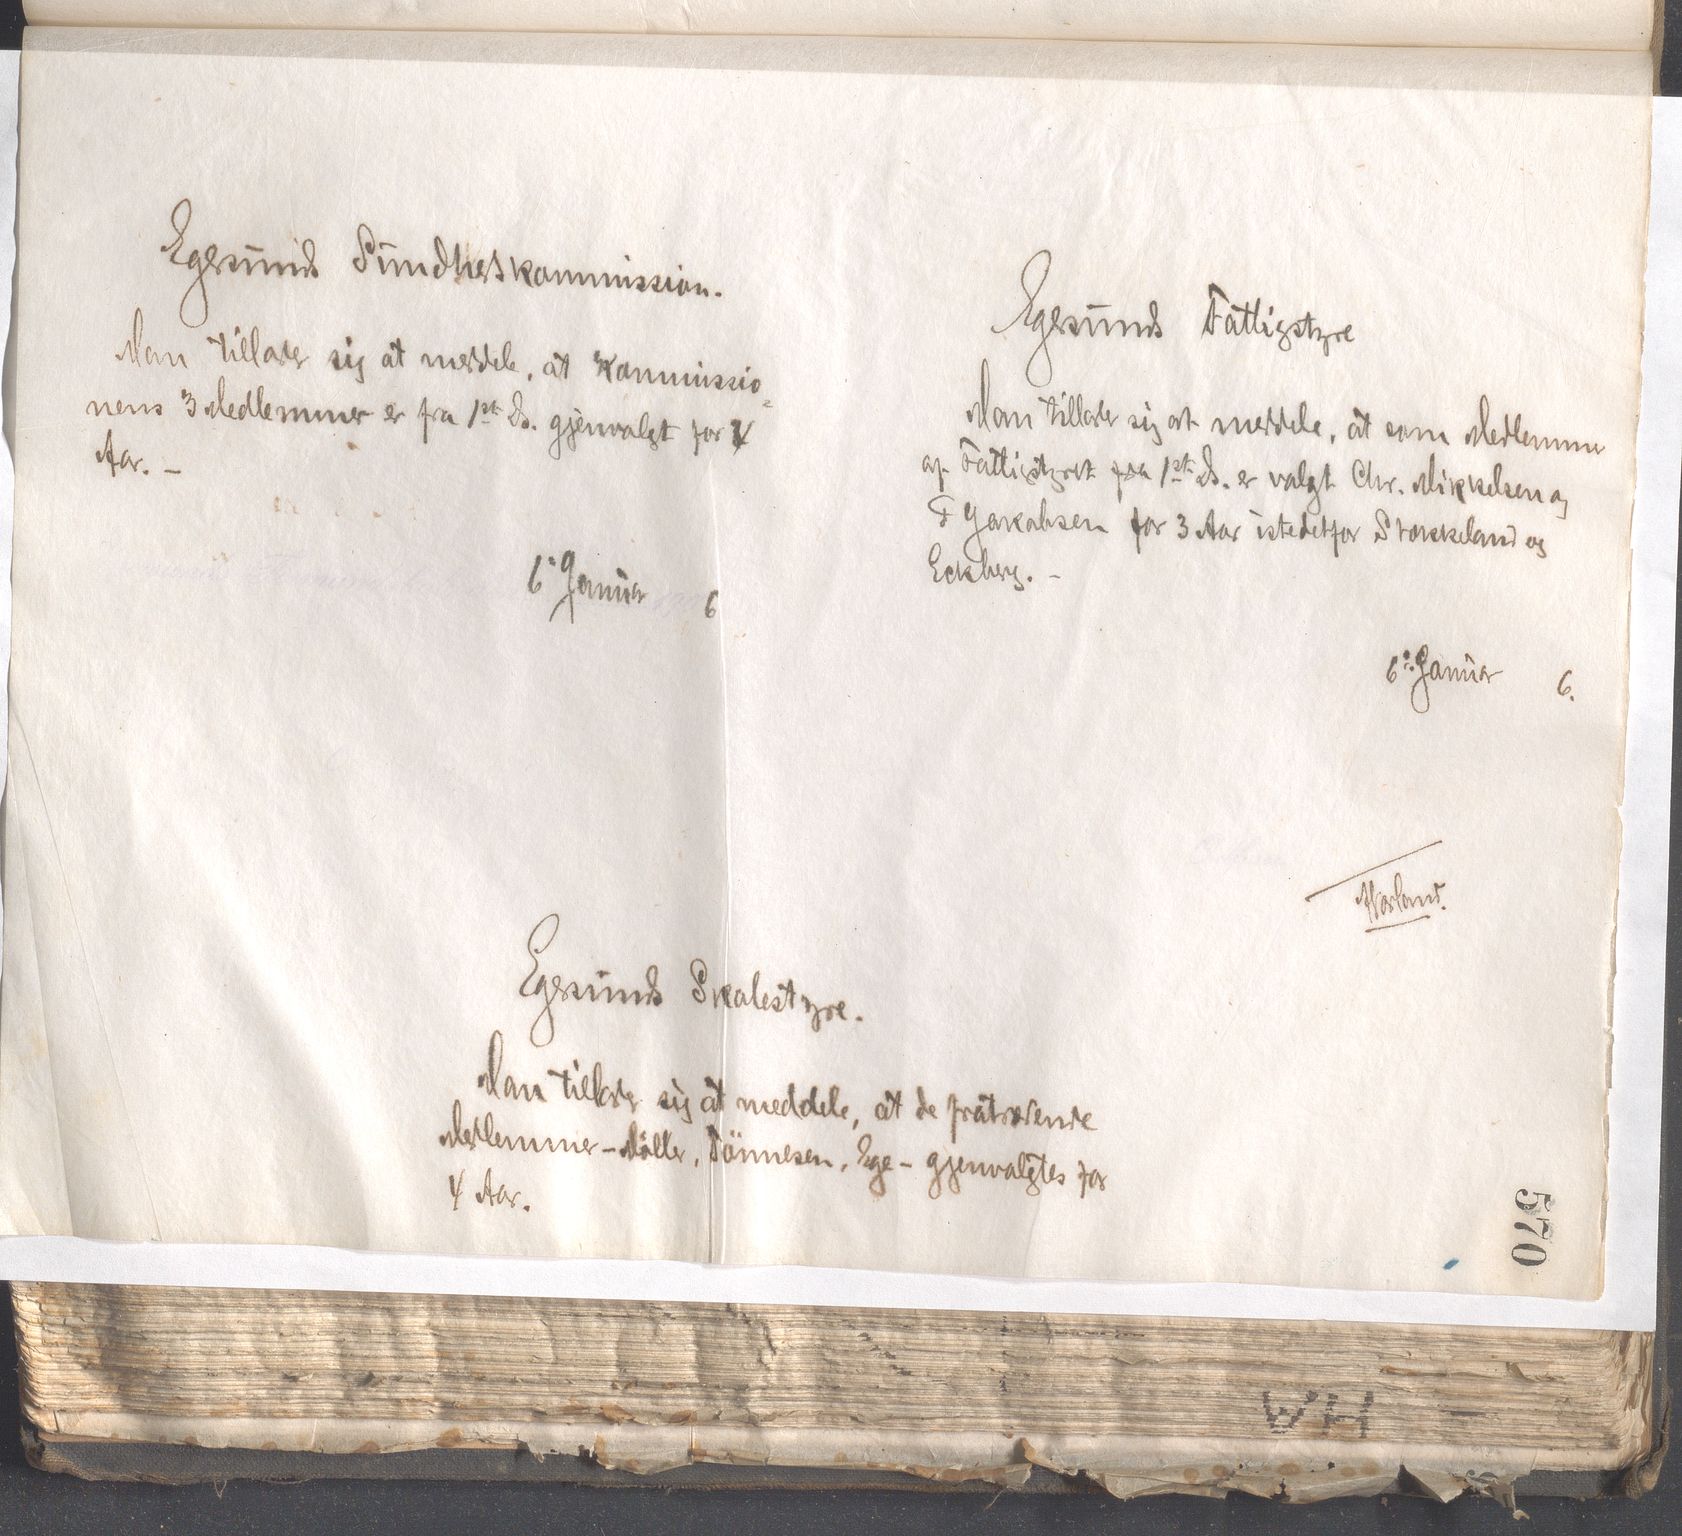 Egersunds Sundhedskommission.
Man tillader sig at meddele, at Kommissio-
nens 3 Medlemmer er fra 1ste ds. gjenvalgt for 4
Aar. -
6. Januar 6
Egersunds Fattigstyre
Man tillader sig at meddele, at som Medlemmer
af Fattigstyret fra 1ste ds. er valgt Chr. Mikkelsen og
F Jakobsen for 3 Aar istedetfor Stokkeland og
Eckberg. -
6. Januar 6.
Egersunds Skolestyre.
Man tillader sig at meddele, at de fratrædende
Medlemmer - Möller, Tönnesen, Ege - gjenvalgtes for
4 Aar.
570